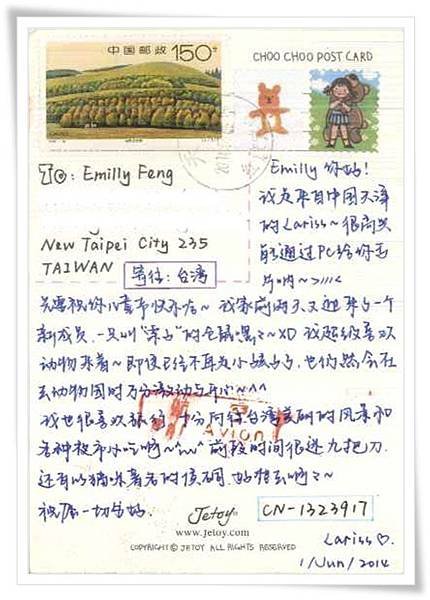 中国邮政 150分
CHOO CHOO POST CARD
To: Emilly Feng
New Taipei City 235
TAIWAN
寄往: 台湾
Emilly 你好!
我是来自中国天津
的Lariss~很高兴
能通过PC给你寄
片哟~>///<
先要祝你儿童节快乐~ 我家前两天又迎来了一个
新成员,一只叫"
"的仓鼠嘿~XD 我超级喜欢
动物来着~即使已经不再是小孩子了,也仍然会在
去动物园时万分激动与开心~^^
我也很喜欢旅行,十分向往台湾美丽的风景和
各种夜市小吃啊~ 前段时间很迷九把刀
还有以猫咪著名的侯硐,好想去啊~~
祝你一切安好.
AVION
Jetoy
www.jetoy.com
COPYRIGHT © JETOY ALL RIGHTS RESERVED
CN-1323917
Lariss♡.
1/Jun/2014